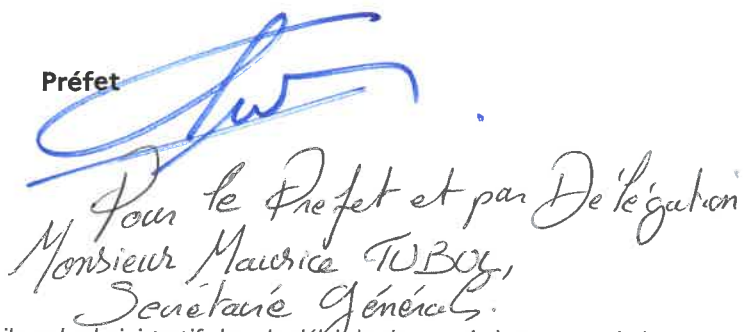 Préfet
Pour le Préfet et par Délégation
Monsieur Maurice TUBOUL,
Secrétaire Général.